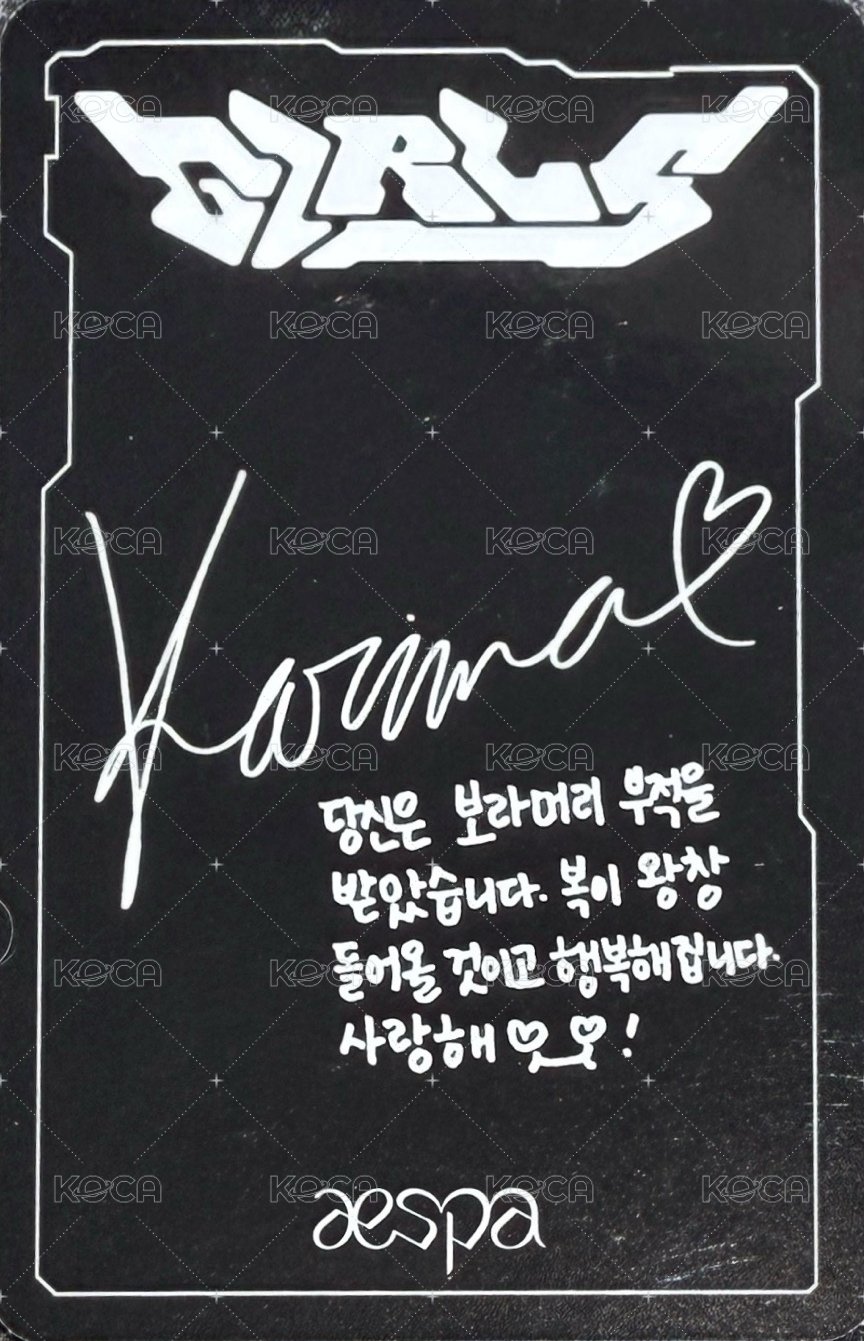 GIRLS
Karina
당신은 보라머리 부적을
받았습니다. 복이 왕창
들어올 것이고 행복해집니다.
사랑해♡_♡!
aespa
KOCA KOCA KOCA KOCA
KOCA KOCA KOCA KOCA
KOCA KOCA KOCA KOCA
KOCA KOCA KOCA KOCA
KOCA KOCA KOCA KOCA
KOCA KOCA KOCA KOCA